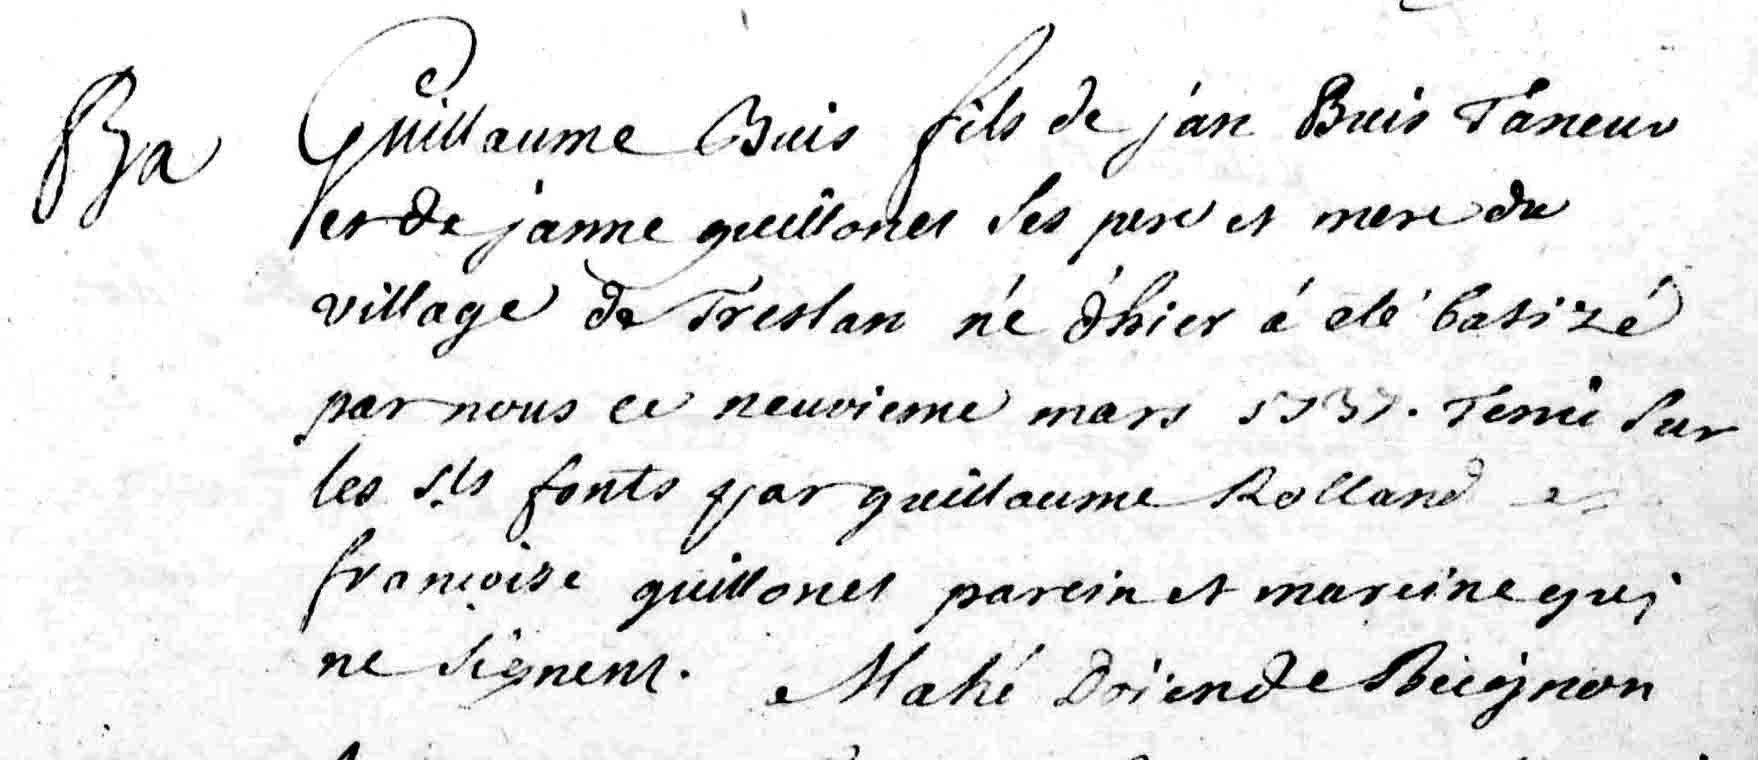 Ba
Guillaume Buis fils de jan Buis Taneur
et de janne guillonet ses pere et mere du
village de Treslan né d'hier á eté batizé
par nous ce neuvieme mars 1737. Tenu sur
les sts fonts par guillaume Rolland et
francoise guillonet parein et mareine qui
ne signent. Mahé de Beignon